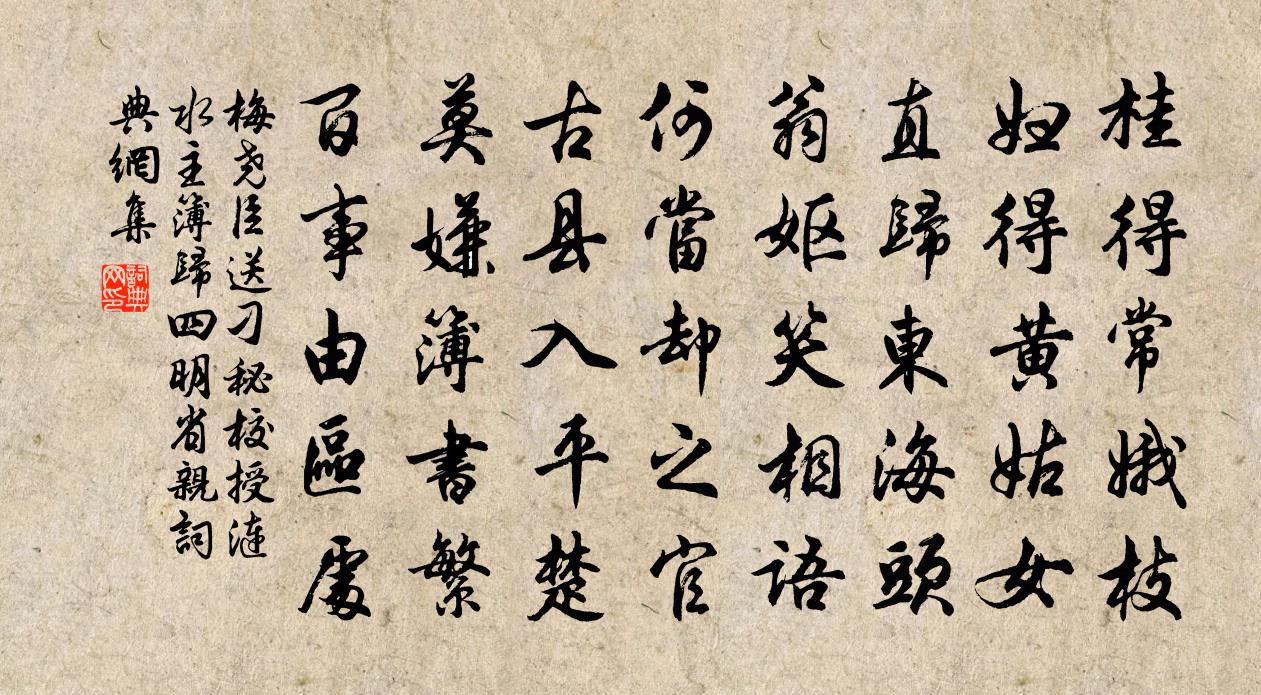 桂得常娥枝
妇得黄姑女
直歸東海頭
翁嫗笑相語
何當却之官
古县入平楚
莫嫌簿書繁
百事由區處
梅尧臣送刁秘校授涟
水主簿歸四明省親詞
典網集
詞典
网印